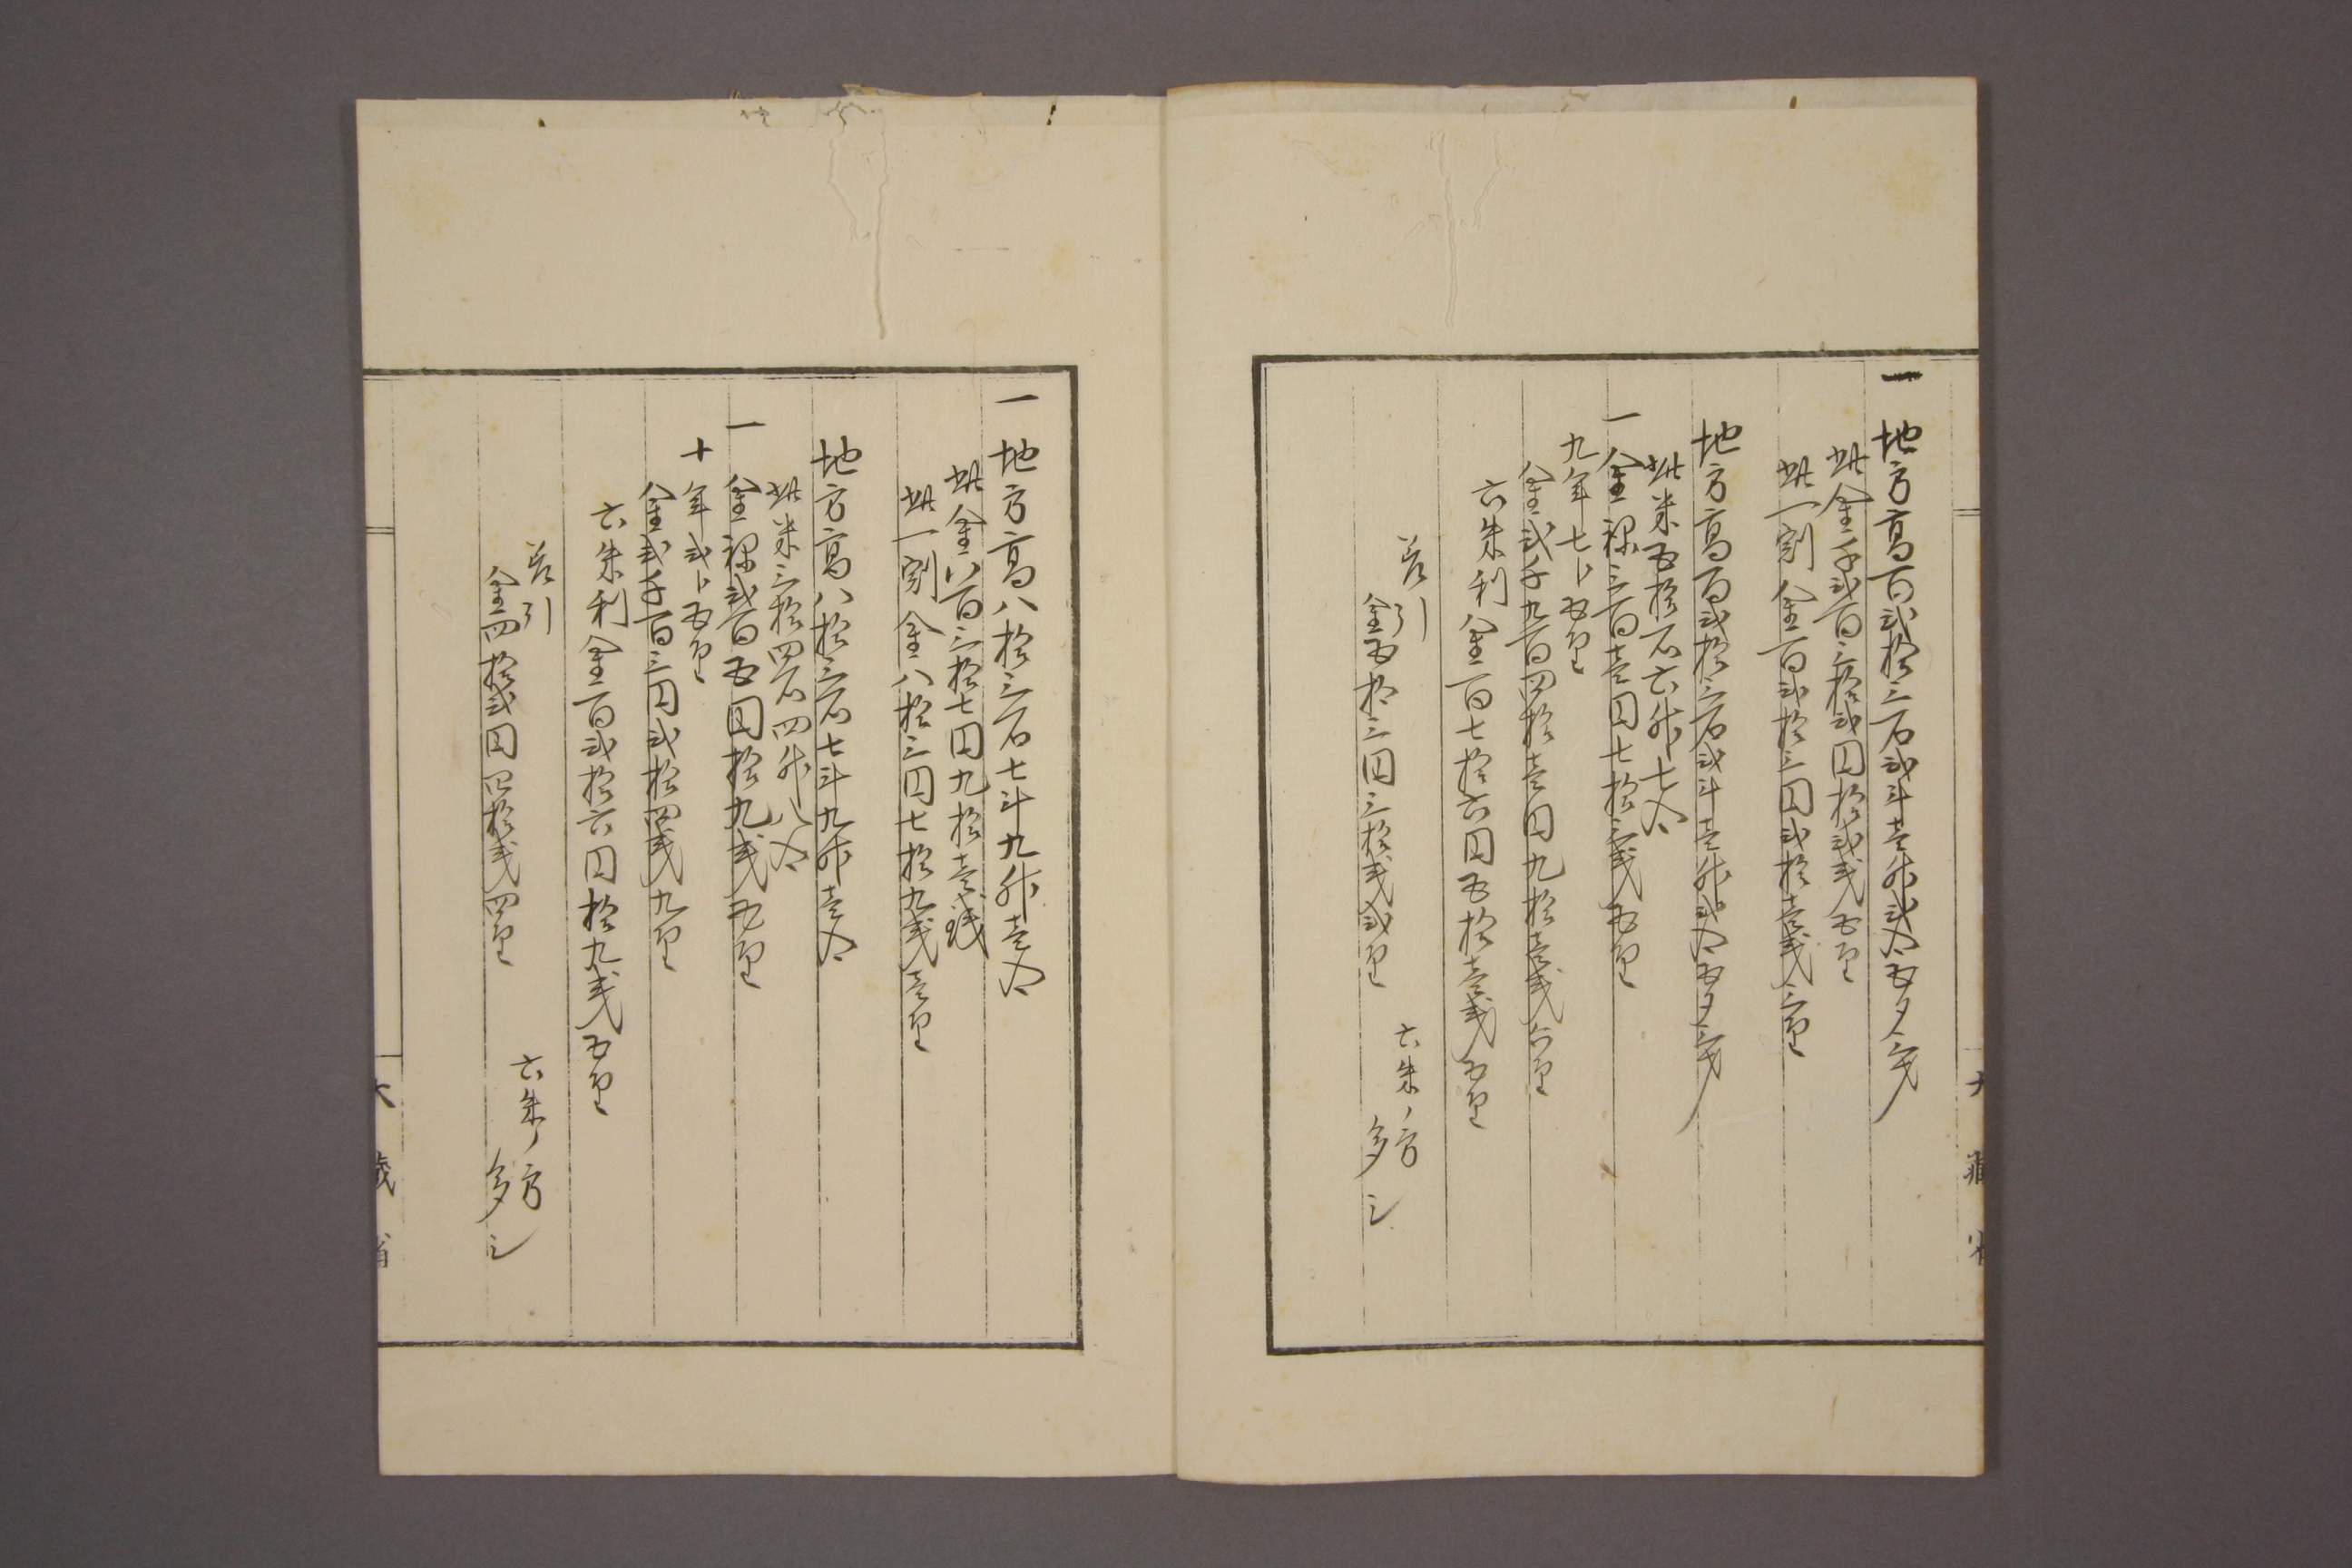 一 地方高百弐拾三石弐斗壱升弐合五夕三才
此金千弐百三拾弐円拾弐銭五厘
此一割 金百弐拾三円弐拾壱銭三厘
地方高百弐拾三石弐斗壱升弐合五夕三才
此米五拾石六升七合
一 金禄三百壱円七拾三銭五厘
九年七卜五厘
金弐千九百四拾壱円九拾壱銭六厘
六朱利 金百七拾六円五拾壱銭五厘
差引
金五拾三円三拾銭弐厘 六朱ノ方多シ
大藏省
一 地方高八拾三石七斗九升壱合
此金八百三拾七円九拾壱銭
此一割 金八拾三円七拾九銭壱厘
地方高八拾三石七斗九升壱合
此米三拾四石四升八合
一 金禄弐百五円拾九銭五厘
十年弐卜五厘
金弐千百三円弐拾四銭九厘
六朱利 金百弐拾六円拾九銭五厘
差引
金四拾弐円四拾銭四厘 六朱ノ方多シ
大藏省